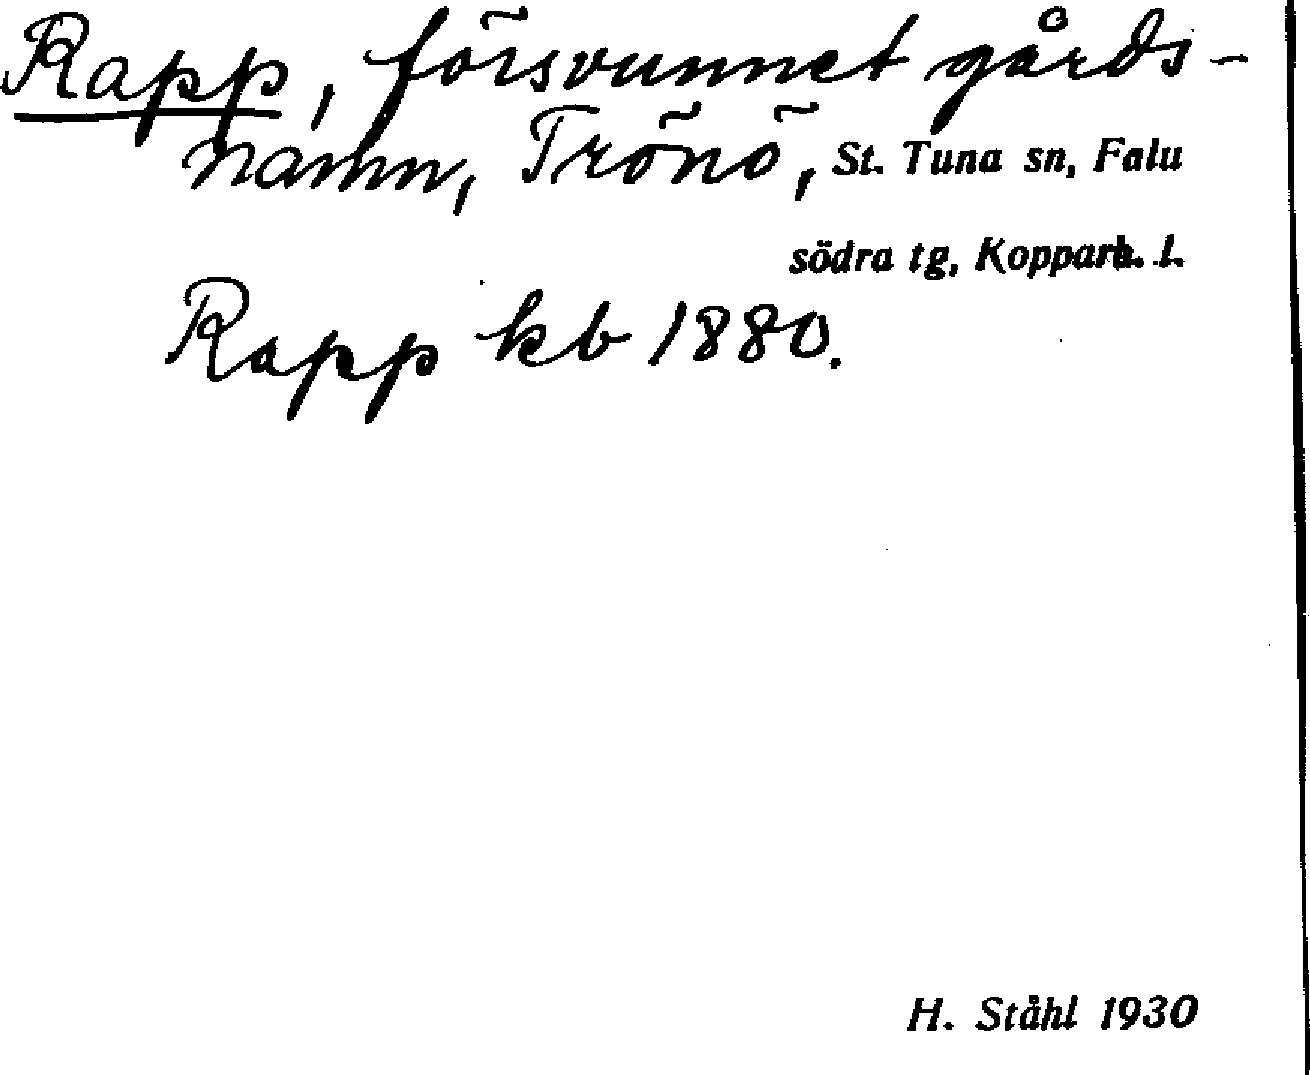 Rapp, försvunnet gårds-
namn, Trönö, St. Tuna sn, Falu
södra tg, Kopparb. l.
Rapp kb 1880.
H. Ståhl 1930